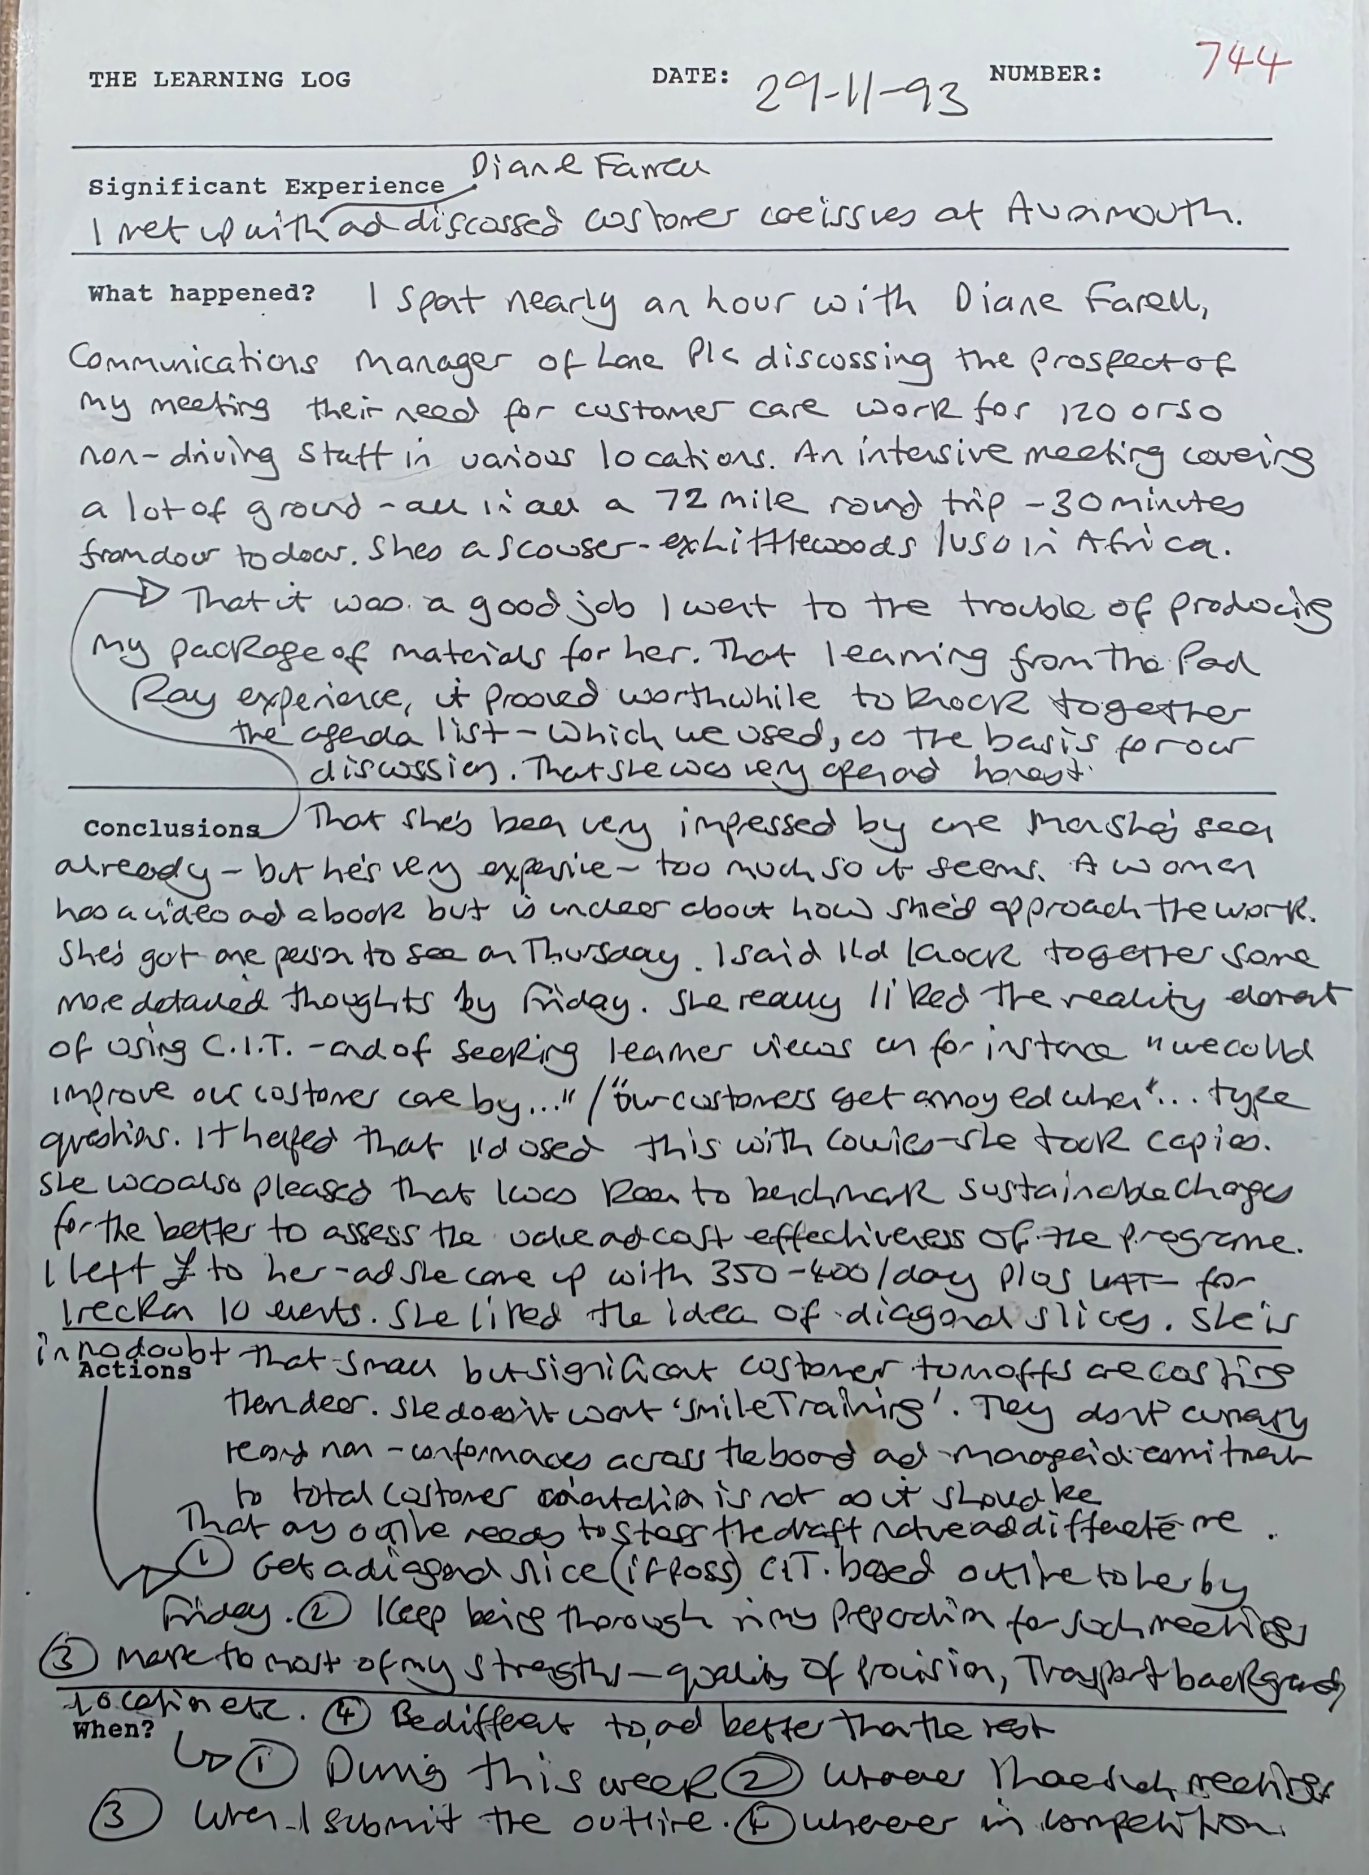 THE LEARNING LOG DATE: 29-11-93 NUMBER: 744
Diane Farrell
Significant Experience
I met up with and discussed customer care issues at Avonmouth.
What happened? I spent nearly an hour with Diane Farell,
Communications Manager of Lane Plc discussing the prospect of
my meeting their need for customer care work for 120 or so
non-driving staff in various locations. An intensive meeting covering
a lot of ground - all in all a 72 mile round trip - 30 minutes
from door to door. She's a scouser - ex Littlewoods / VSO in Africa.
That it was a good job I went to the trouble of producing
my package of materials for her. That learning from the Pad
Ray experience, it proved worthwhile to knock together
the agenda list - which we used, as the basis for our
discussion. That she was very open and honest.
Conclusions That she's been very impressed by one man she's seen
already - but he's very expensive - too much so it seems. A women
has a video and a book but is unclear about how she'd approach the work.
She's got one person to see on Thursday. I said I'd knock together some
more detailed thoughts by Friday. She really liked the reality element
of using C.I.T. - and of seeking learner views on for instance "we could
improve our customer care by..." / "our customers get annoyed when"... type
questions. It helped that I'd used this with Cowies - she took copies.
She was also pleased that I was keen to benchmark sustainable changes
for the better to assess the value and cost effectiveness of the programme.
I left £ to her - and she came up with 350-400/day plus VAT - for
I reckon 10 events. She liked the idea of diagonal slices. She is
in no doubt that small but significant customer turnoffs are costing
Actions
them dear. She doesn't want 'Smile Training'. They don't currently
record non-conformances across the board and managerial commitment
to total customer orientation is not as it should be
That any outline needs to stress the draft nature and differentiate me.
① Get a diagonal slice (if poss) CIT. based outline to her by
Friday. ② Keep being thorough in my preparation for such meetings
③ Make to most of my strengths - quality of provision, Transport background,
location etc. ④ Be different to, and better than the rest
When?
① During this week ② Whenever I have such meetings
③ When I submit the outline. ④ Whenever in competition.